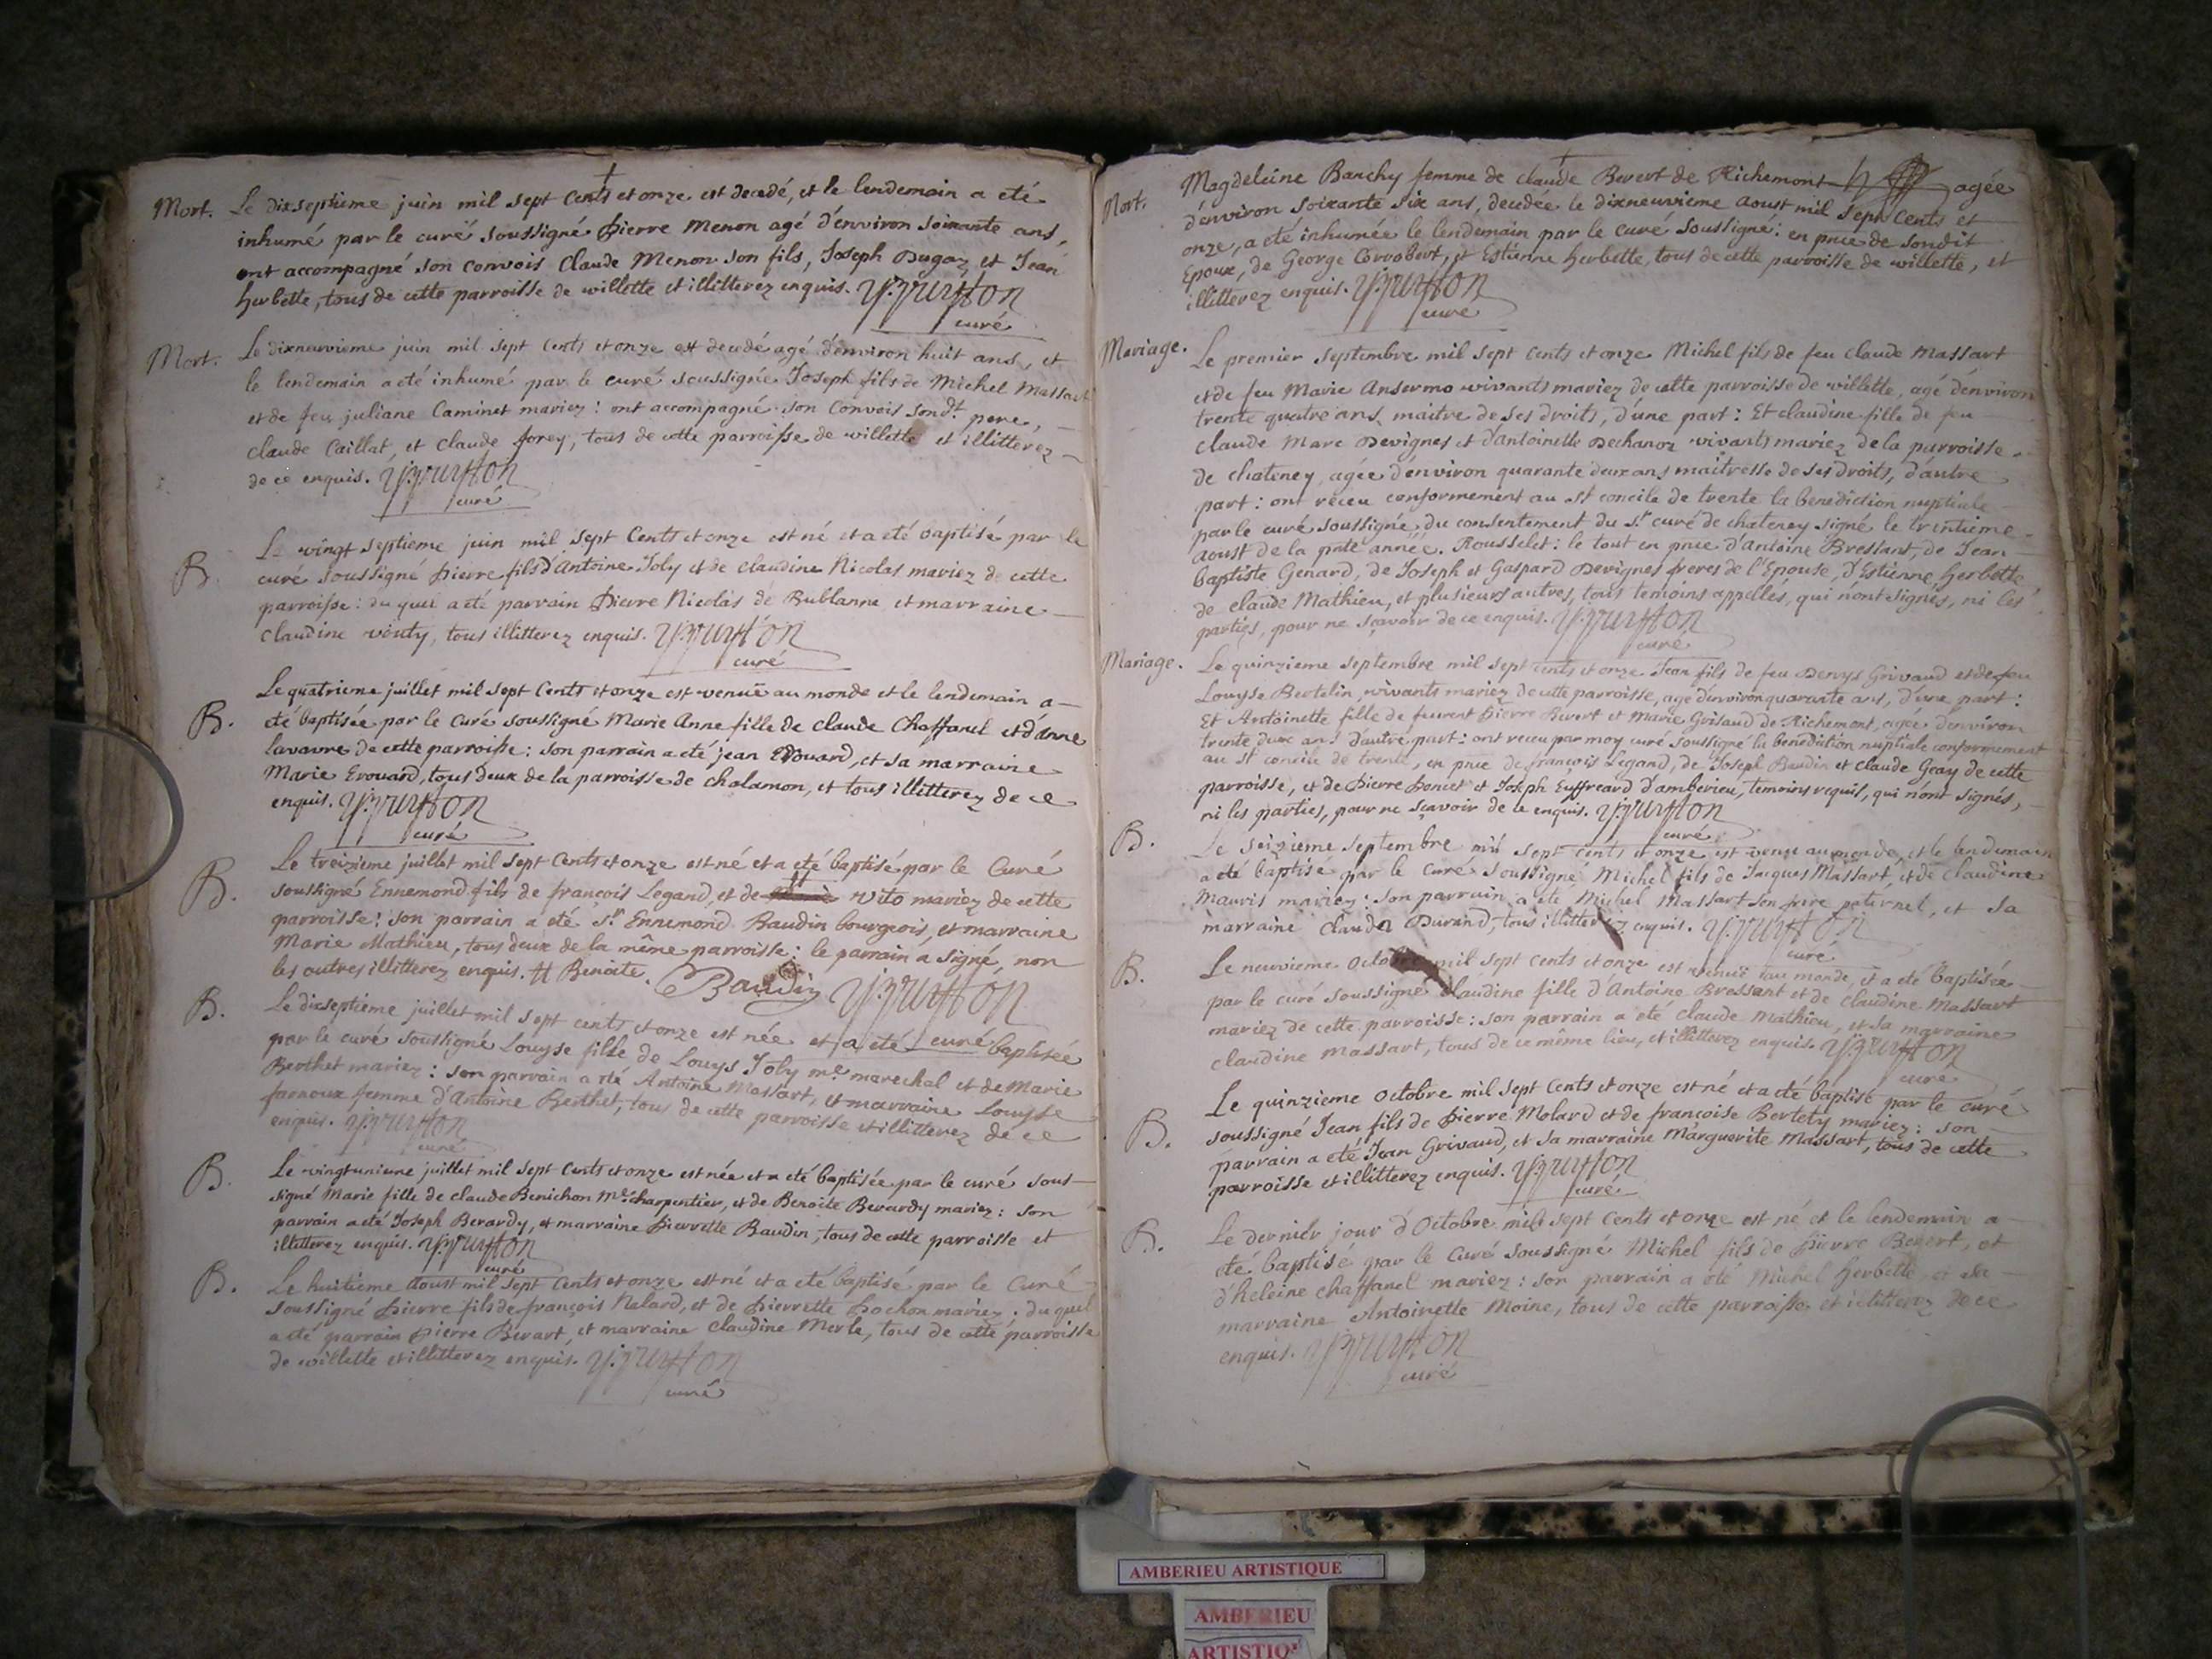 Mort. Le dixseptieme juin mil sept cents et onze est decedé, et le lendemain a eté
inhumé par le curé soussigné pierre Menon agé d'environ soixante ans,
ont accompagné son convois Claude Menon son fils, Joseph Dugaz et Jean
herbette, tous de cette parroisse de willette et illitterez enquis.
curé
Mort. Le dixneuvieme juin mil sept cents et onze est decedé agé d'environ huit ans, et
le lendemain a eté inhumé par le curé soussigné Joseph fils de Michel Massart
et de feu juliane Caminet mariez : ont accompagné son convois sond.t pere,
claude Caillat, et claude forey, tous de cette parroisse de willette et illitterez
de ce enquis.
curé
B. Le vingt septieme juin mil sept cents et onze est né et a eté baptisé par le
curé soussigné pierre fils d'Antoine Joly et de claudine Nicolas mariez de cette
parroisse : du quel a eté parrain pierre Nicolas de Bublanne, et marraine
claudine vouty, tous illitterez enquis.
curé
B. Le quatrieme juillet mil sept cents et onze est venuë au monde et le lendemain a
eté baptisée par le curé soussigné Marie Anne fille de claude Chaffanel et d'anne
lavavre de cette parroisse : son parrain a eté jean Evouard, et sa marraine
Marie Evouard, tous deux de la parroisse de chalamon, et tous illitterez de ce
enquis.
curé
B. Le treizieme juillet mil sept cents et onze est né et a eté baptisé par le Curé
soussigné Ennemond fils de françois Legand, et de Vito mariez de cette
parroisse : son parrain a eté S.r Ennemond Baudin bourgeois, et marraine
Marie Mathieu, tous deux de la même parroisse : le parrain a signé, non
les autres illitterez enquis. H Benoite. Baudin
curé
B. Le dixseptieme juillet mil sept cents et onze est née et a eté baptisée
par le curé soussigné Louyse fille de Louys Joly m.e marechal et de Marie
Berthet mariez : son parrain a eté Antoine Massart, et marraine Louyse
farnoux femme d'Antoine Berthet, tous de cette parroisse et illitterez de ce
enquis.
curé
B. Le vingtunieme juillet mil sept cents et onze est née et a eté baptisée par le curé sous-
signé Marie fille de claude Benichon M.e charpentier, et de Benoite Berardy mariez : son
parrain a eté Joseph Berardy, et marraine pierrette Baudin, tous de cette parroisse et
illitterez enquis.
curé
B. Le huitieme Aoust mil sept cents et onze est né et a eté baptisé par le Curé
soussigné pierre fils de françois Nalard, et de pierrette pochon mariez : du quel
a eté parrain pierre Berart, et marraine Claudine Merle, tous de cette parroisse
de willette et illitterez enquis.
curé
Mort. Magdeleine Banchy femme de claude Berert de Richemont agée
d'environ soixante six ans, decedée le dixneuvieme Aoust mil sept cents et
onze, a eté inhumée le lendemain par le curé soussigné : en pnce de sondit
Epoux, de George Corrobert, et Estienne herbette, tous de cette parroisse de willette, et
illitterez enquis.
curé
Mariage. Le premier septembre mil sept cents et onze Michel fils de feu claude Massart
et de feu Marie Ansermo vivants mariez de cette parroisse de villette, agé d'environ
trente quatre ans, maitre de ses droits, d'une part : Et claudine fille de feu
Claude Marc Devignes et d'Antoinette Dechanoz vivants mariez de la parroisse
de chateney, agée d'environ quarante deux ans maitresse de ses droits, d'autre
part : ont receu conformement au s.t concile de trente la benediction nuptiale
par le curé soussigné, du consentement du s.r curé de chateney signé le trentieme
aoust de la pnte année. Rousselet : le tout en pnce d'Antoine Bressant, de Jean
baptiste Genard, de Joseph et Gaspard Devignes freres de l'Epouse, d'Estienne herbette
de claude Mathieu, et plusieurs autres, tous temoins appellés, qui n'ont signés, ni les
parties, pour ne sçavoir de ce enquis.
curé
Mariage. Le quinzieme septembre mil sept cents et onze Jean fils de feu Denys Grivaud et de feu
Louyse Bertelin, vivants mariez de cette parroisse, agé d'environ quarante ans, d'une part :
Et Antoinette fille de feurent pierre Berert et Marie Grisaud de Richemont, agée d'environ
trente deux ans d'autre part : ont receu par moy curé soussigné la benediction nuptiale conformement
au st concile de trente, en pnce de françois Legand, de Joseph Baudin et claude Geay de cette
parroisse, et de pierre poncet et Joseph Euffreard d'amberieu, temoins requis, qui n'ont signés,
ni les parties, pour ne sçavoir de ce enquis.
curé
B. Le seizieme septembre mil sept cents et onze est venu au monde, et le lendemain
a eté baptisé par le curé soussigné Michel fils de Jacques Massart, et de Claudine
Mauris mariez : son parrain a eté Michel Massart son frere paternel, et sa
marraine Clauda Durand, tous illitterez enquis.
curé
B. Le neuvieme Octobre mil sept cents et onze est venuë au monde, et a eté baptisée
par le curé soussigné Claudine fille d'Antoine Bressant et de claudine Massart
mariez de cette parroisse : son parrain a eté claude Mathieu, et sa marraine
claudine Massart, tous de ce même lieu, et illitterez enquis.
curé
B. Le quinzieme Octobre mil sept cents et onze est né et a eté baptisé par le curé
soussigné Jean fils de pierre Molard et de françoise Bertety mariez : son
parrain a eté Jean Grivaud, et sa marraine Marguerite Massart, tous de cette
parroisse et illitterez enquis.
curé
B. Le dernier jour d'Octobre mil sept cents et onze est né et le lendemain a
eté baptisé par le curé soussigné Michel fils de pierre Berert, et
d'heleine chaffanel mariez : son parrain a eté Michel herbette, et sa
marraine Antoinette Moine, tous de cette parroisse et illitterez de ce
enquis.
curé
AMBERIEU ARTISTIQUE
AMBERIEU
ARTISTIQ